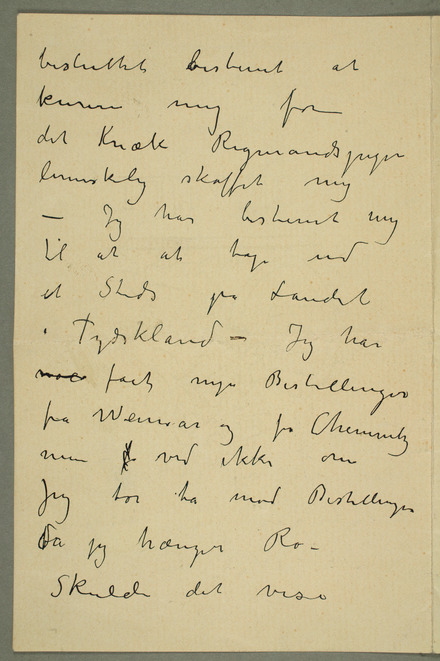 besluttet bestemt at
kurere mig for
det Knæk Rigmandspigen
lumskelig skaffet mig
— Jeg har bestemt mig
til at at tage ud
et Steds på Landet
i Tydskland – Jeg har
faaet nye Bestillinger
fra Weimar og fra Chemnitz
men ved ikke om
Jeg tør ta mod Bestillinger
Da jeg trænger Ro –
Skulde det vise